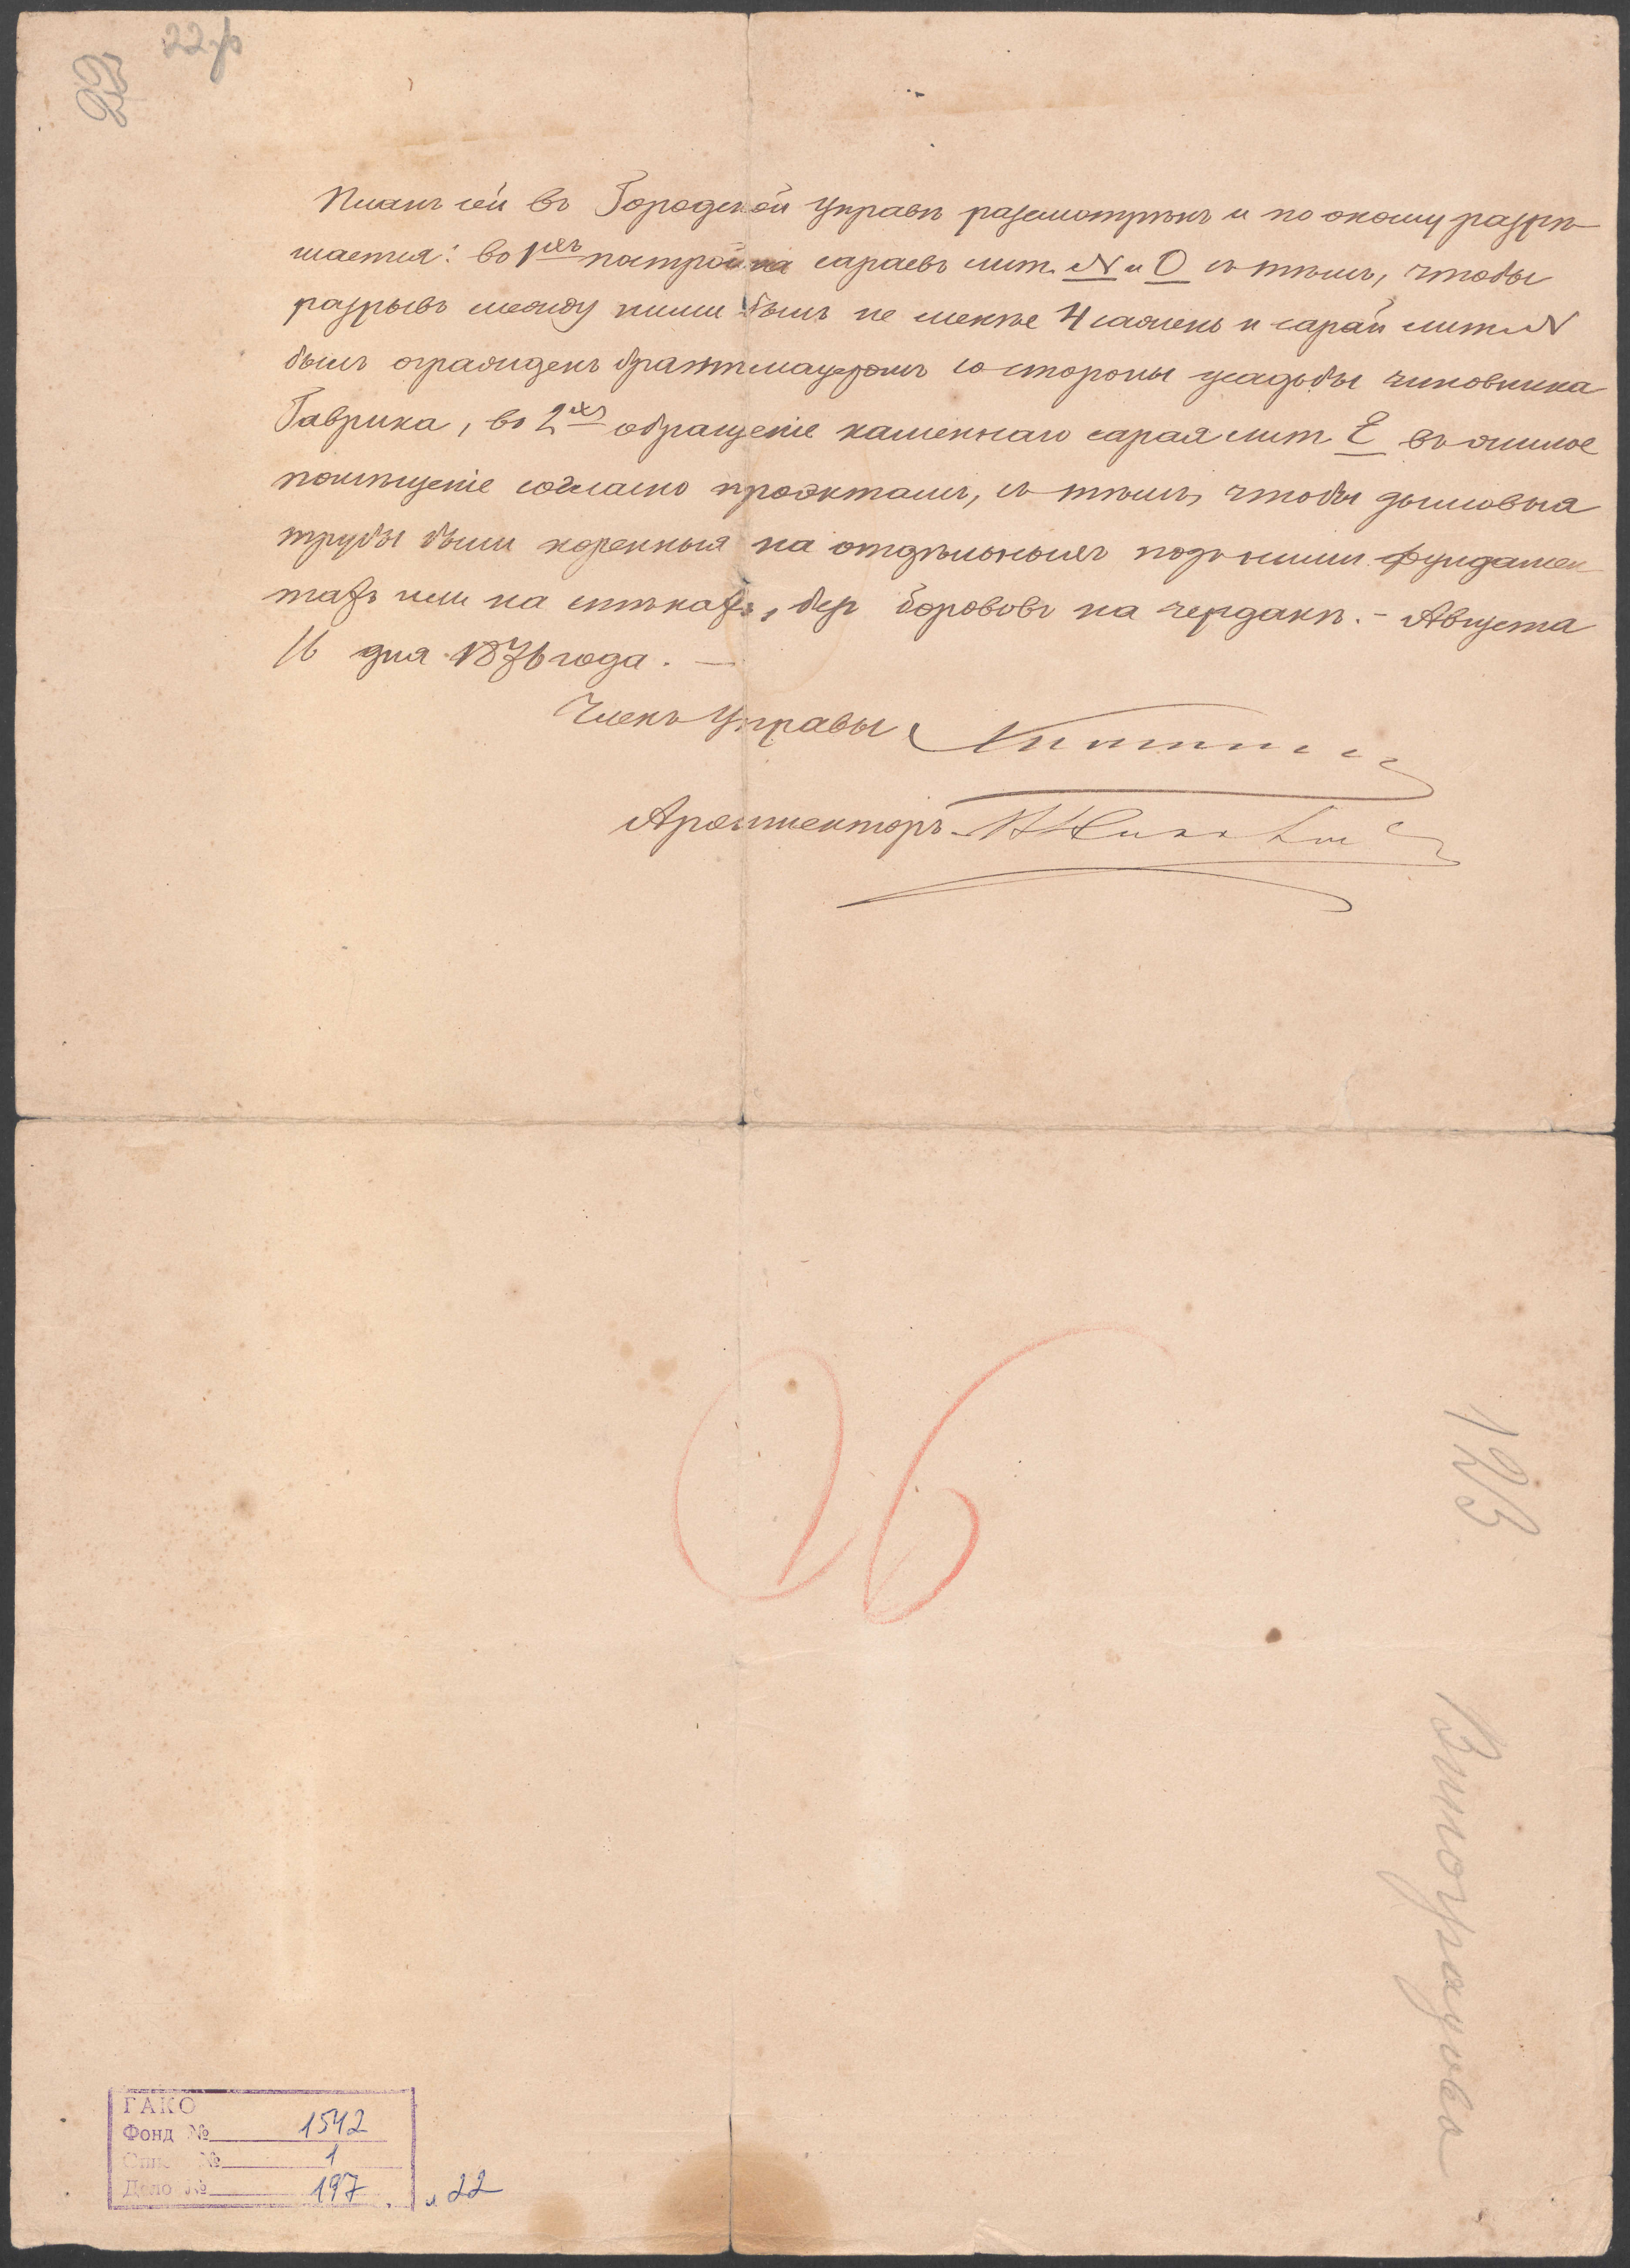 22 об
22
Планъ сей въ Городской Управѣ разсмотрѣнъ и по оному разрѣ-
шается: во 1хъ постройка сараевъ лит. N и O съ тѣмъ, чтобы
разрывъ между ними былъ не менѣе 4 сажень и сарай лит N
былъ огражденъ брантмауеромъ со стороны усадьбы чиновника
Гаврика, во 2хъ обращеніе каменнаго сарая лит. E въ жилое
помѣщеніе согласно проэктамъ, съ тѣмъ, чтобы дымовыя
трубы были коренныя на отдѣльныхъ подъ ними фундамен
тахъ или на стѣнахъ, без борововъ на чердакѣ. - Августа
16 дня 1876 года. —
Членъ Управы
Архитекторъ
26
123
Виноградова
ГАКО
Фонд № 1542
Опись № 1
Дело № 197. л 22